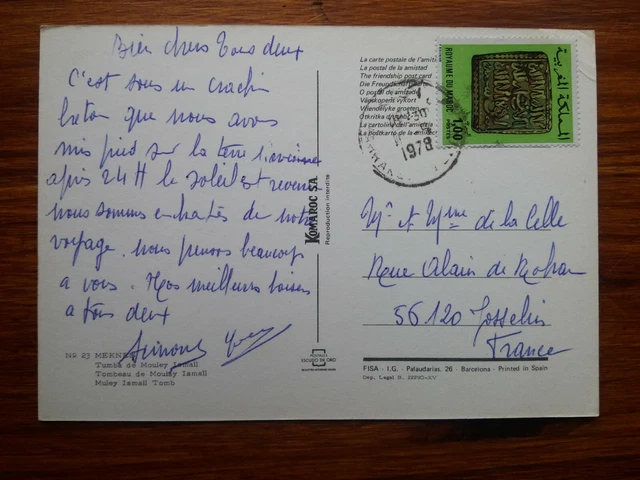 Bien chers tous deux
C'est sous un crachin
breton que nous avons
mis pied sur la terre
après 24 H le soleil est revenu
nous sommes enchantés de notre
voyage. nous pensons beaucoup
à vous. Nos meilleurs baisers
à tous deux
Simone Yves
Nº 23 MEKNES
Tumba de Mouley Ismail
Tombeau de Moulay Ismail
Muley Ismail Tomb
KOMAROC SA
Reproduction interdite
POSTALES
ESCUDO DE ORO
La carte postale de l'amitié
La postal de la amistad
The friendship post card
Die Freundschafts
O postal de amizade
Vänskapens vykort
Vriendelyke groeten
Otkritka d
La cartolina dell'amicizia
La postkarto de la amikeco
1978
ROYAUME DU MAROC
1,00
المملكة المغربية
Mr et Mme de la Celle
Rue Alain de Rohan
56120 Josselin
France
FISA - I.G. - Palaudarias, 26 - Barcelona - Printed in Spain
Dep. Legal B. 22990-XV